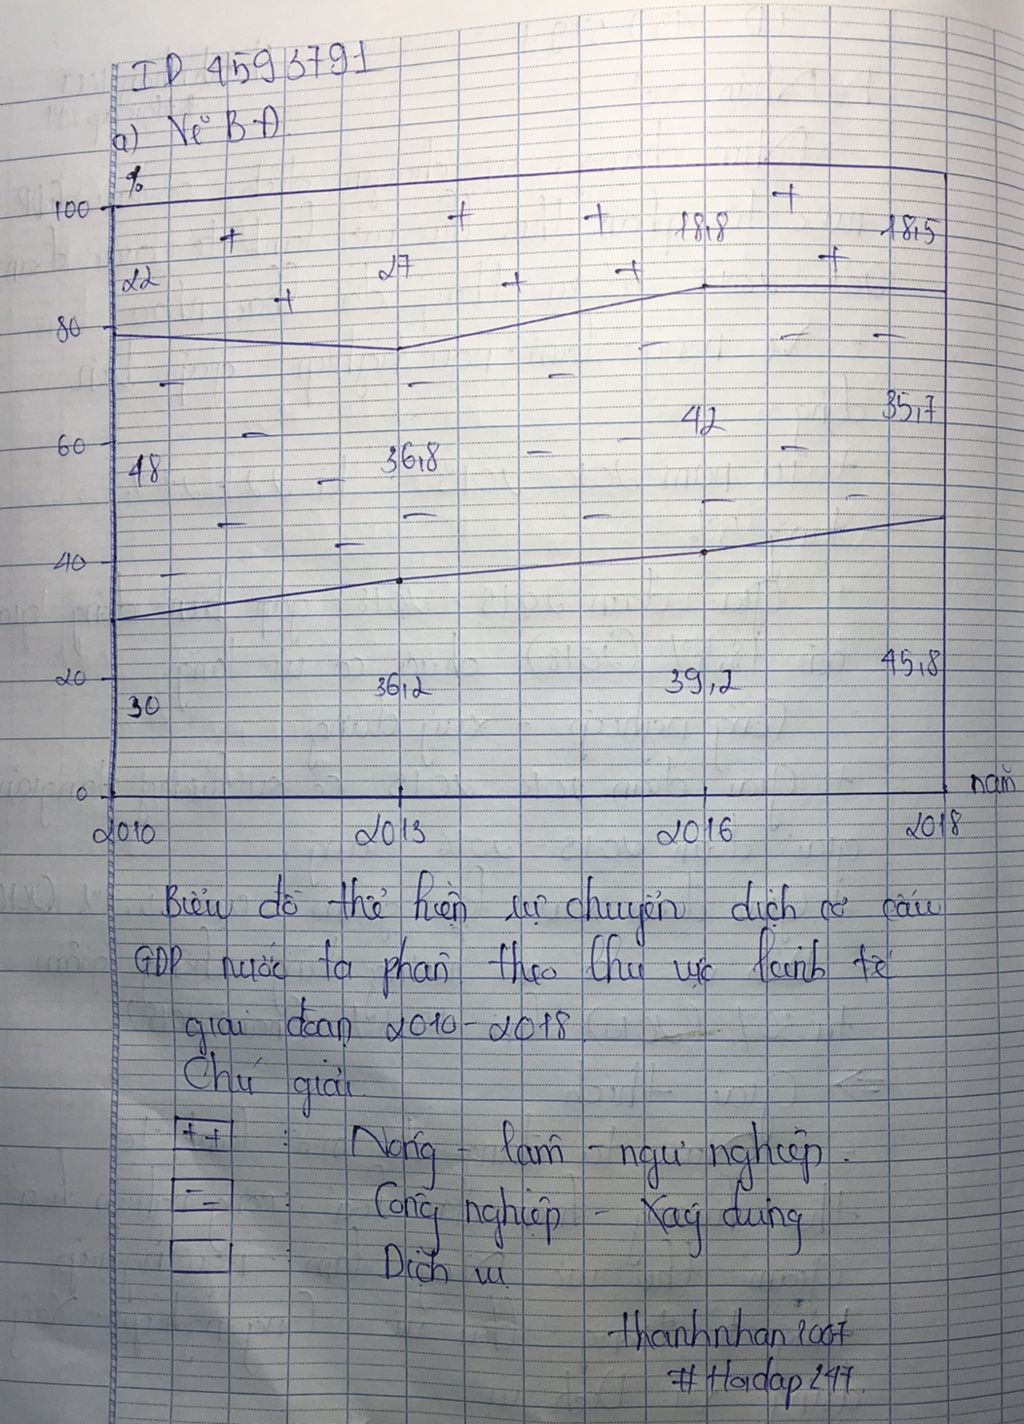 ID 4593791
a) Vẽ BĐ
%
100
22 27 18,8 18,5
80
60
48 36,8 42 35,7
40
20
30 36,2 39,2 45,8
0
năm
2010 2013 2016 2018
Biểu đồ thể hiện sự chuyển dịch cơ cấu
GDP nước ta phân theo khu vực kinh tế
giai đoạn 2010-2018
Chú giải
++ : Nông - lâm - ngư nghiệp.
-- : Công nghiệp - xây dựng
: Dịch vụ
thanhnhan2007
# Hoidap247.